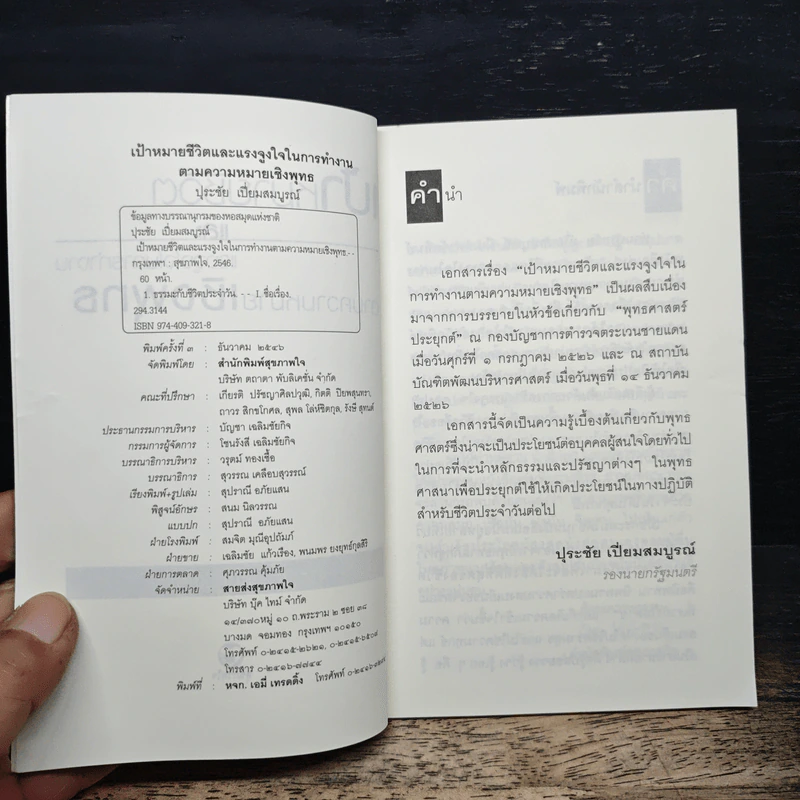 เป้าหมายชีวิตและแรงจูงใจในการทำงาน
ตามความหมายเชิงพุทธ
ปุระชัย เปี่ยมสมบูรณ์
ข้อมูลทางบรรณานุกรมของหอสมุดแห่งชาติ
ปุระชัย เปี่ยมสมบูรณ์
เป้าหมายชีวิตและแรงจูงใจในการทำงานตามความหมายเชิงพุทธ.--
กรุงเทพฯ : สุขภาพใจ, 2546.
60 หน้า.
1. ธรรมะกับชีวิตประจำวัน. -- I. ชื่อเรื่อง.
294.3144
ISBN 974-409-321-8
พิมพ์ครั้งที่ ๓ : ธันวาคม ๒๕๔๖
จัดพิมพ์โดย : สำนักพิมพ์สุขภาพใจ
บริษัท ตถาตา พับลิเคชั่น จำกัด
คณะที่ปรึกษา : เกียรติ ปรัชญาศิลปวุฒิ, กิตติ ปิยพสุนทรา,
ถาวร สิกขโกศล, สุพล โล่ห์ชิตกุล, รังษี สุทนต์
ประธานกรรมการบริหาร : บัญชา เฉลิมชัยกิจ
กรรมการผู้จัดการ : โชนรังสี เฉลิมชัยกิจ
บรรณาธิการบริหาร : วรุตม์ ทองเชื้อ
บรรณาธิการ : สุวรรณ เคลือบสุวรรณ์
เรียงพิมพ์+รูปเล่ม : สุปราณี อภัยแสน
พิสูจน์อักษร : สนม นิลวรรณ
แบบปก : สุปราณี อภัยแสน
ฝ่ายโรงพิมพ์ : สมจิต มุณีอุปถัมภ์
ฝ่ายขาย : เฉลิมชัย แก้วเรือง, พนมพร ยงยุทธ์กุลสิริ
ฝ่ายการตลาด : ศุภวรรณ คุ้มภัย
จัดจำหน่าย : สายส่งสุขภาพใจ
บริษัท บุ๊ค ไทม์ จำกัด
๑๔/๓๗๐หมู่ ๑๐ ถ.พระราม ๒ ซอย ๓๘
บางมด จอมทอง กรุงเทพฯ ๑๐๑๕๐
โทรศัพท์ ๐-๒๔๑๕-๒๖๒๑, ๐-๒๔๑๕-๖๕๐๗
โทรสาร ๐-๒๔๑๖-๗๗๔๔
พิมพ์ที่ : หจก. เอมี่ เทรดดิ้ง โทรศัพท์
คำนำ
เอกสารเรื่อง “เป้าหมายชีวิตและแรงจูงใจใน
การทำงานตามความหมายเชิงพุทธ” เป็นผลสืบเนื่อง
มาจากการบรรยายในหัวข้อเกี่ยวกับ “พุทธศาสตร์
ประยุกต์” ณ กองบัญชาการตำรวจตระเวนชายแดน
เมื่อวันศุกร์ที่ ๑ กรกฎาคม ๒๕๒๖ และ ณ สถาบัน
บัณฑิตพัฒนบริหารศาสตร์ เมื่อวันพุธที่ ๑๔ ธันวาคม
๒๕๒๖
เอกสารนี้จัดเป็นความรู้เบื้องต้นเกี่ยวกับพุทธ
ศาสตร์ซึ่งน่าจะเป็นประโยชน์ต่อบุคคลผู้สนใจโดยทั่วไป
ในการที่จะนำหลักธรรมและปรัชญาต่างๆ ในพุทธ
ศาสนาเพื่อประยุกต์ใช้ให้เกิดประโยชน์ในทางปฏิบัติ
สำหรับชีวิตประจำวันต่อไป
ปุระชัย เปี่ยมสมบูรณ์
รองนายกรัฐมนตรี